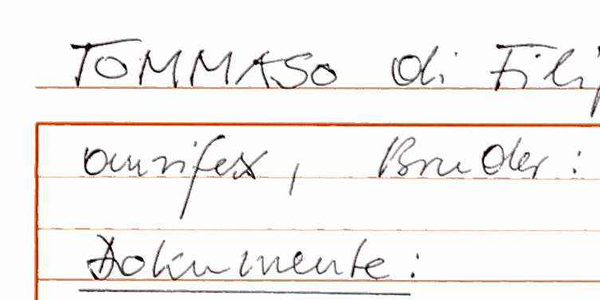 TOMMASO di Filip
aurifex, Bruder:
Dokumente: